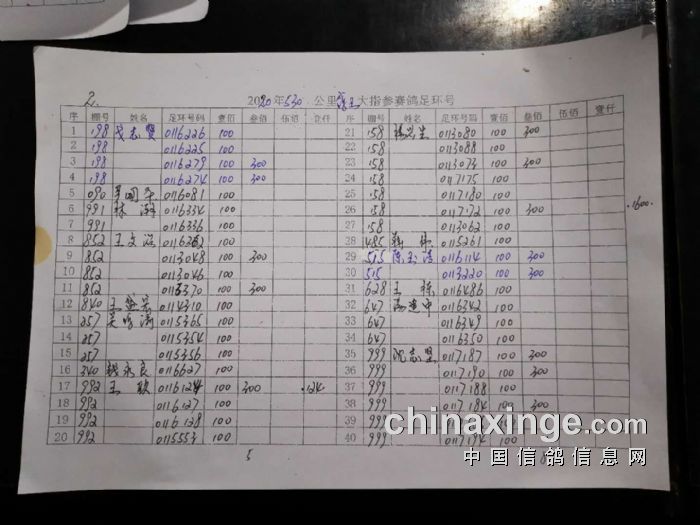 2.
2020年530公里 大指参赛鸽足环号
序 棚号 姓名 足环号码 壹佰 叁佰 伍佰 壹仟 序 棚号 姓名 足环号码 壹佰 叁佰 伍佰 壹仟
1 198 戈志贤 0116226 100 21 158 0113080 100 300
2 198 0116225 100 22 158 0113088 100
3 198 0116279 100 300 23 158 0113073 100 300
4 198 0116274 100 300 24 158 0117175 100
5 090 0116081 100 25 158 0117180 100
6 991 林 0116334 100 26 158 0117172 100 300 .1600.
7 991 0116336 100 27 158 0113062 100
8 852 王文 0116262 100 28 1485 0115261 100
9 852 0113048 100 300 29 515 0116114 100 300
10 852 0113046 100 30 515 0113220 100 300
11 852 0113370 100 300 31 628 王栋 0116486 100
12 840 王 0114310 100 32 647 中 0116342 100
13 257 吴 0115365 100 33 647 0116349 100
14 257 0115354 100 34 647 0116350 100
15 257 0115356 100 35 999 沈志坚 0117187 100 300
16 340 钱永良 0116627 100 36 999 0117190 100 300
17 992 王 0116124 100 300 .124 37 999 0117188 100
18 992 0116127 100 38 999 0117184 100 300
19 992 0116128 100 39 999 100
20 992 0115553 100 40 999 0117194 100
chinaxinge.com
中国信鸽信息网
5 8